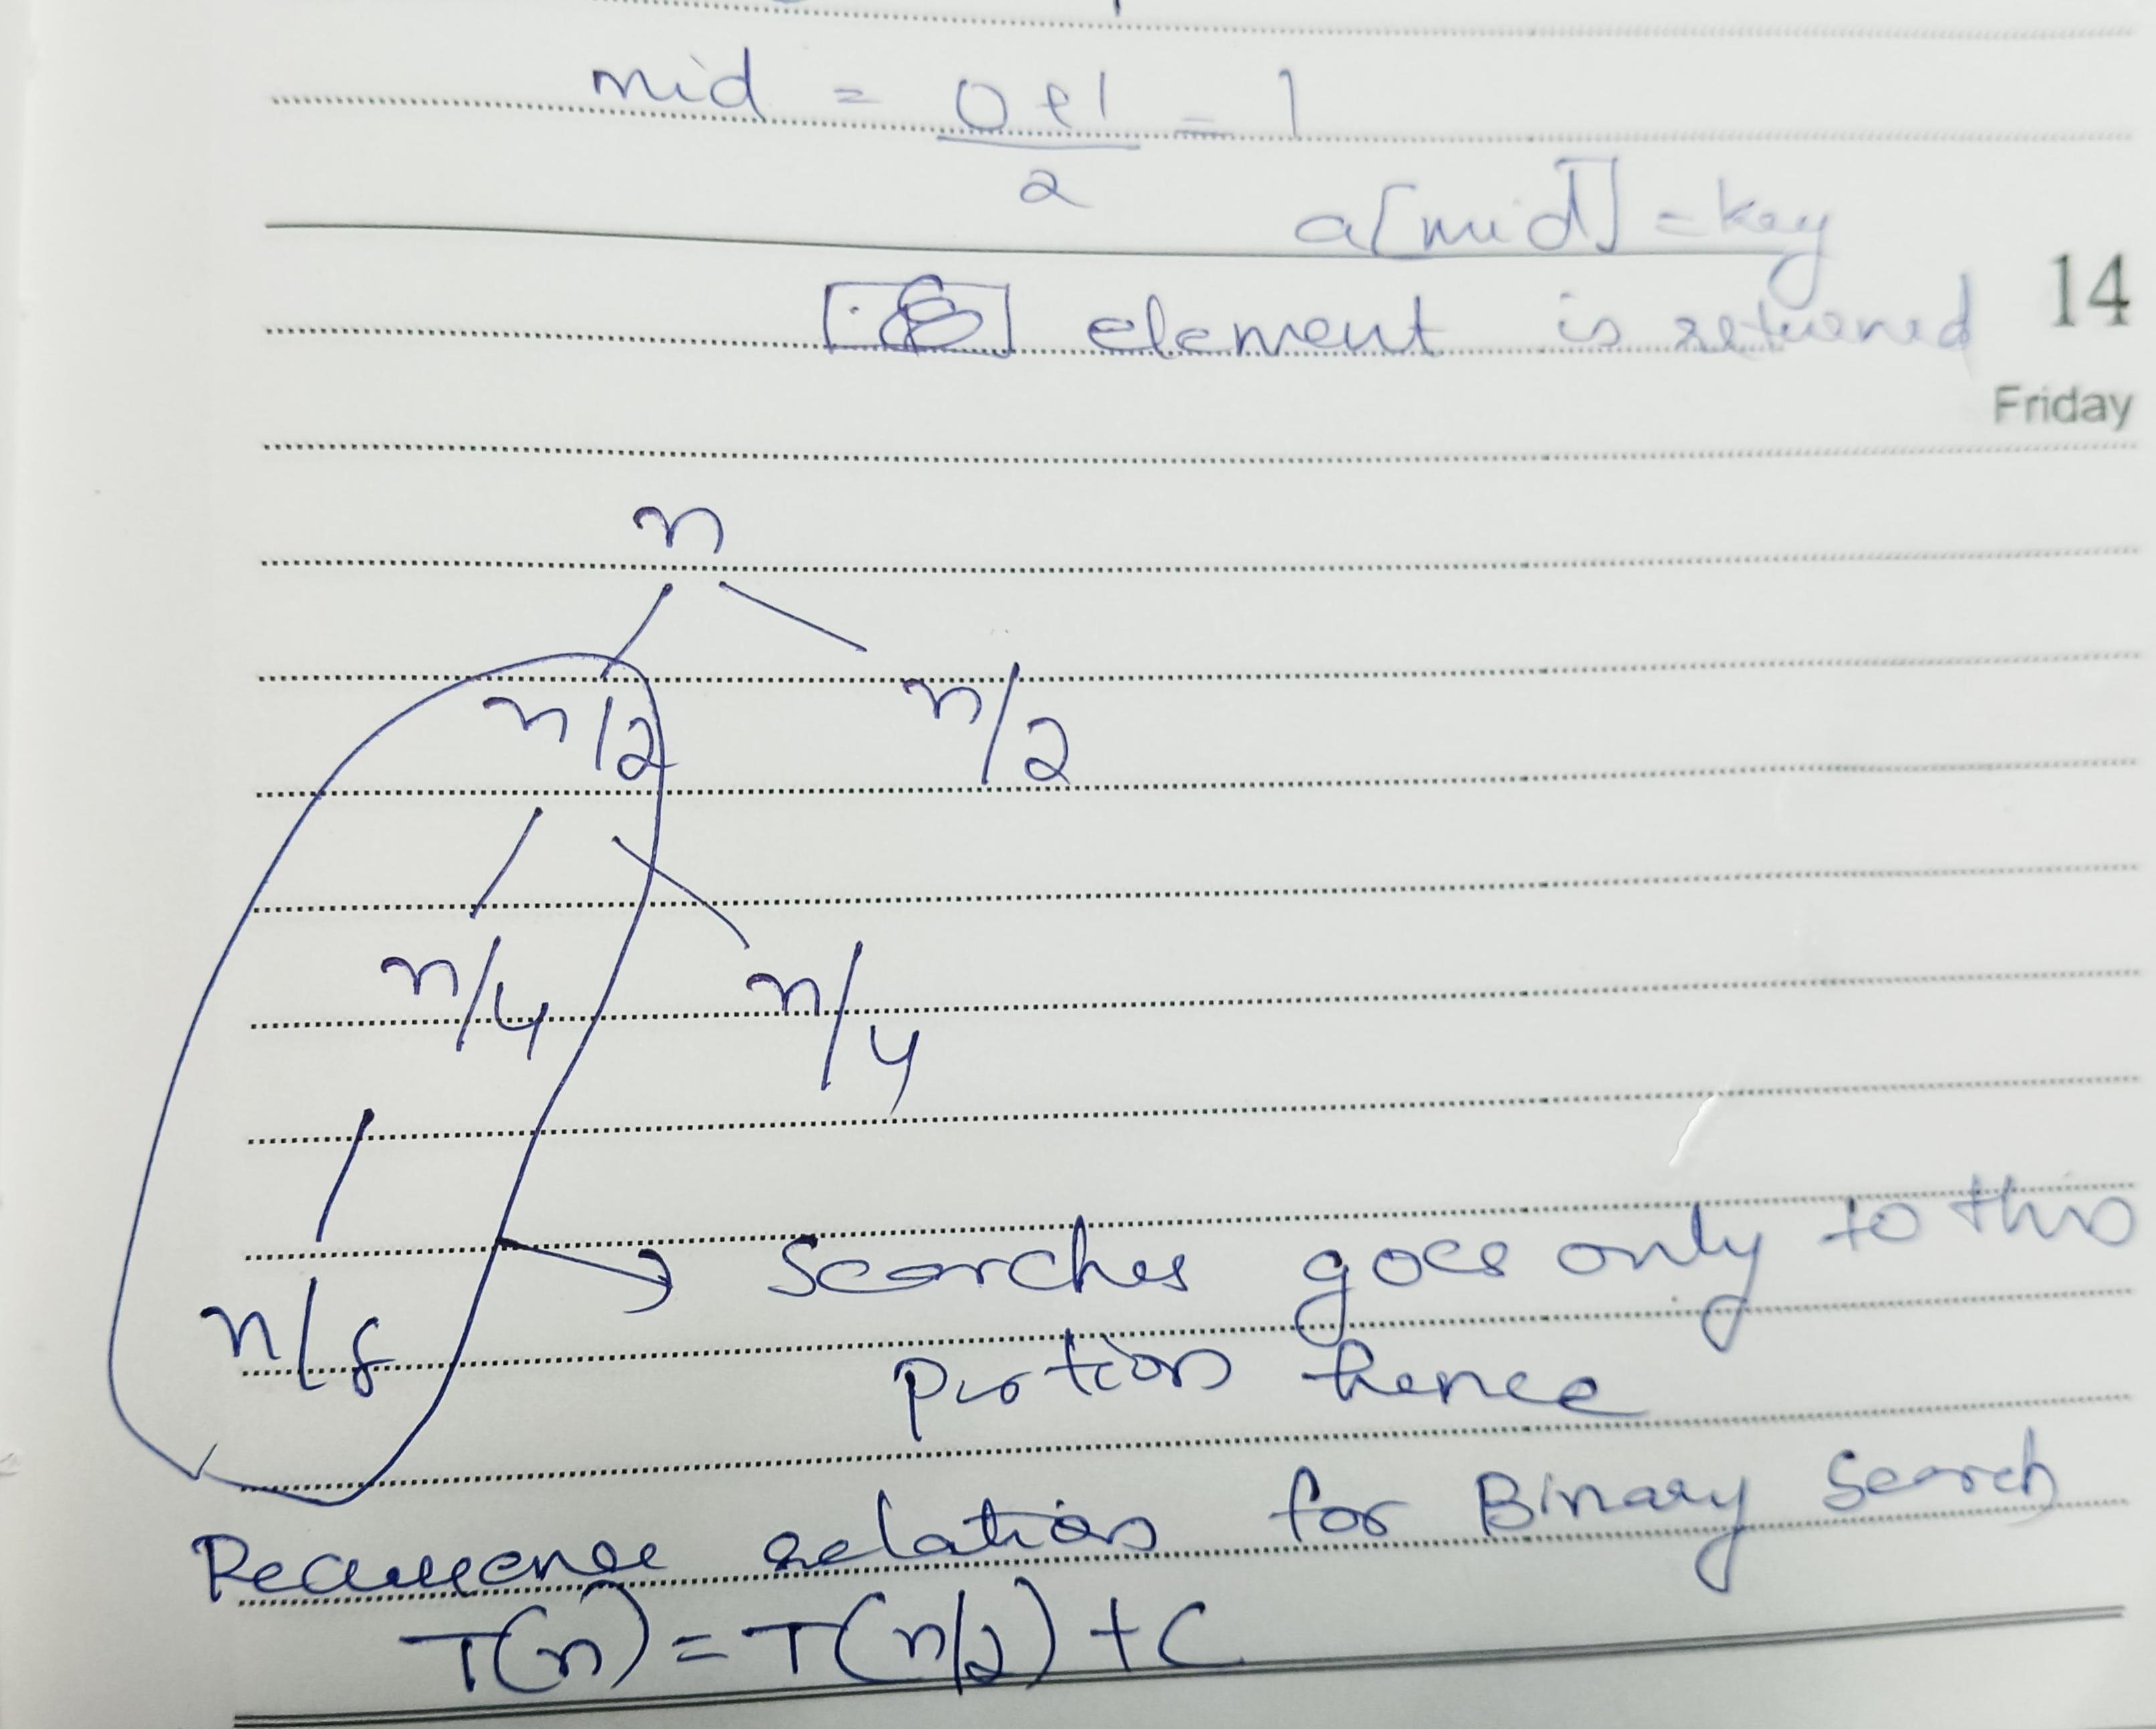 mid = 0+1/2 = 1
a[mid] = key
element is returned
14
Friday
n
n/2 n/2
n/4 n/4
n/8
→ Searches goes only to this
portion hence
Recurrence relation for Binary Search
T(n) = T(n/2) + C